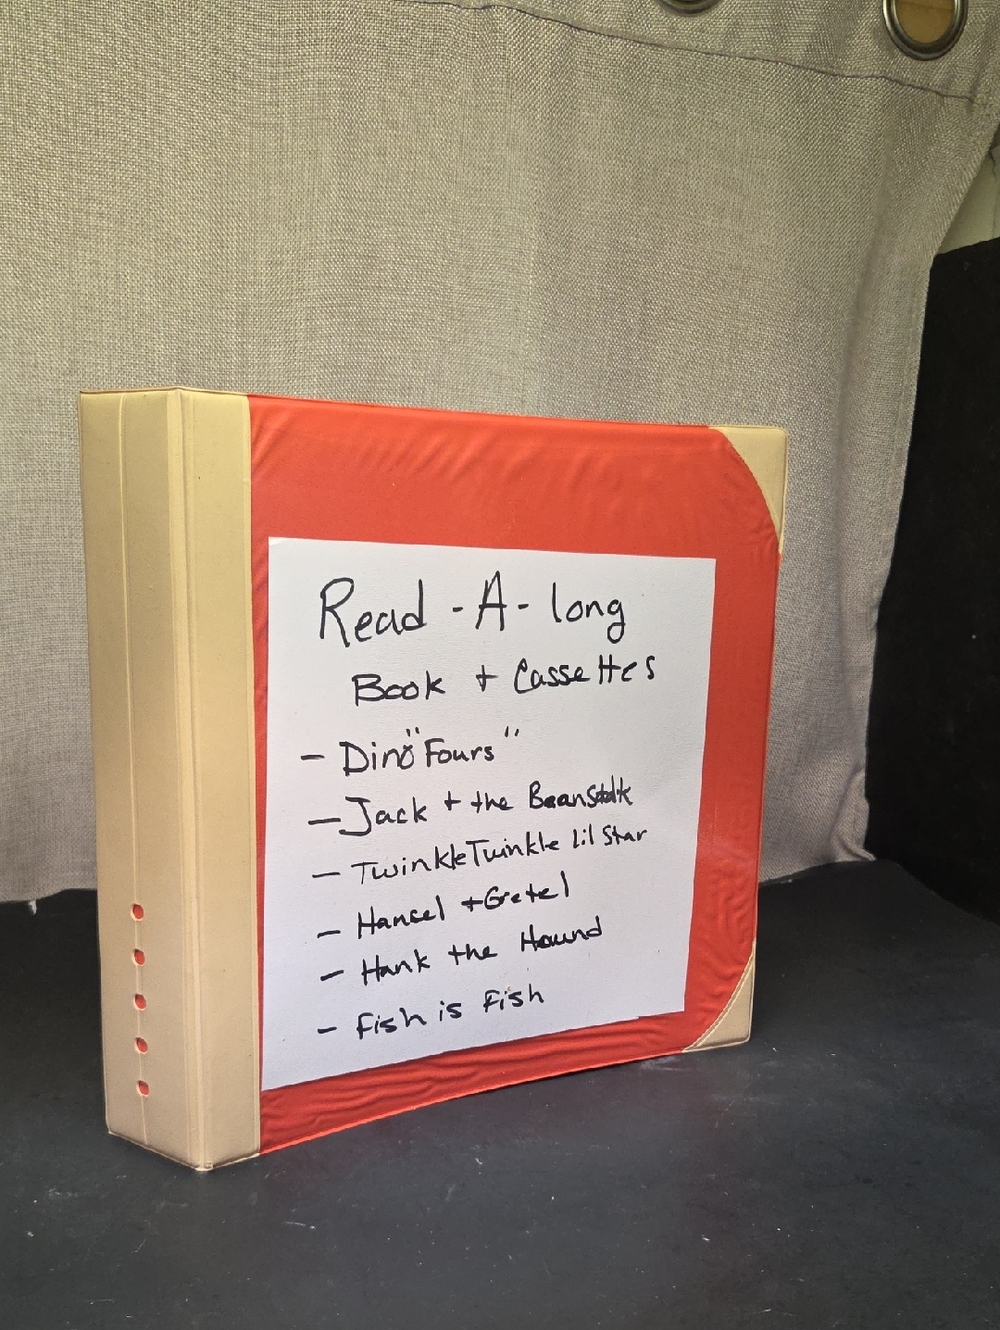 Read - A - long
Book + Cassettes
- Dino "Fours"
- Jack + the Beanstalk
- Twinkle Twinkle Lil Star
- Hansel + Gretel
- Hank the Hound
- Fish is Fish